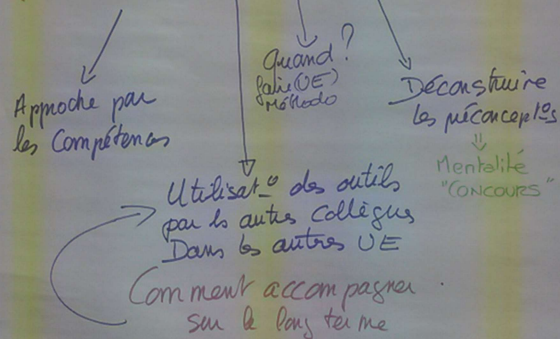 Approche par
les Compétences
Quand ?
faire (UE)
Méthodo
Déconstruire
les préconcept°s
=>
Mentalité
"CONCOURS"
Utilisat° des outils
par les autres collègues
Dans les autres UE
Comment accompagner
sur le long terme